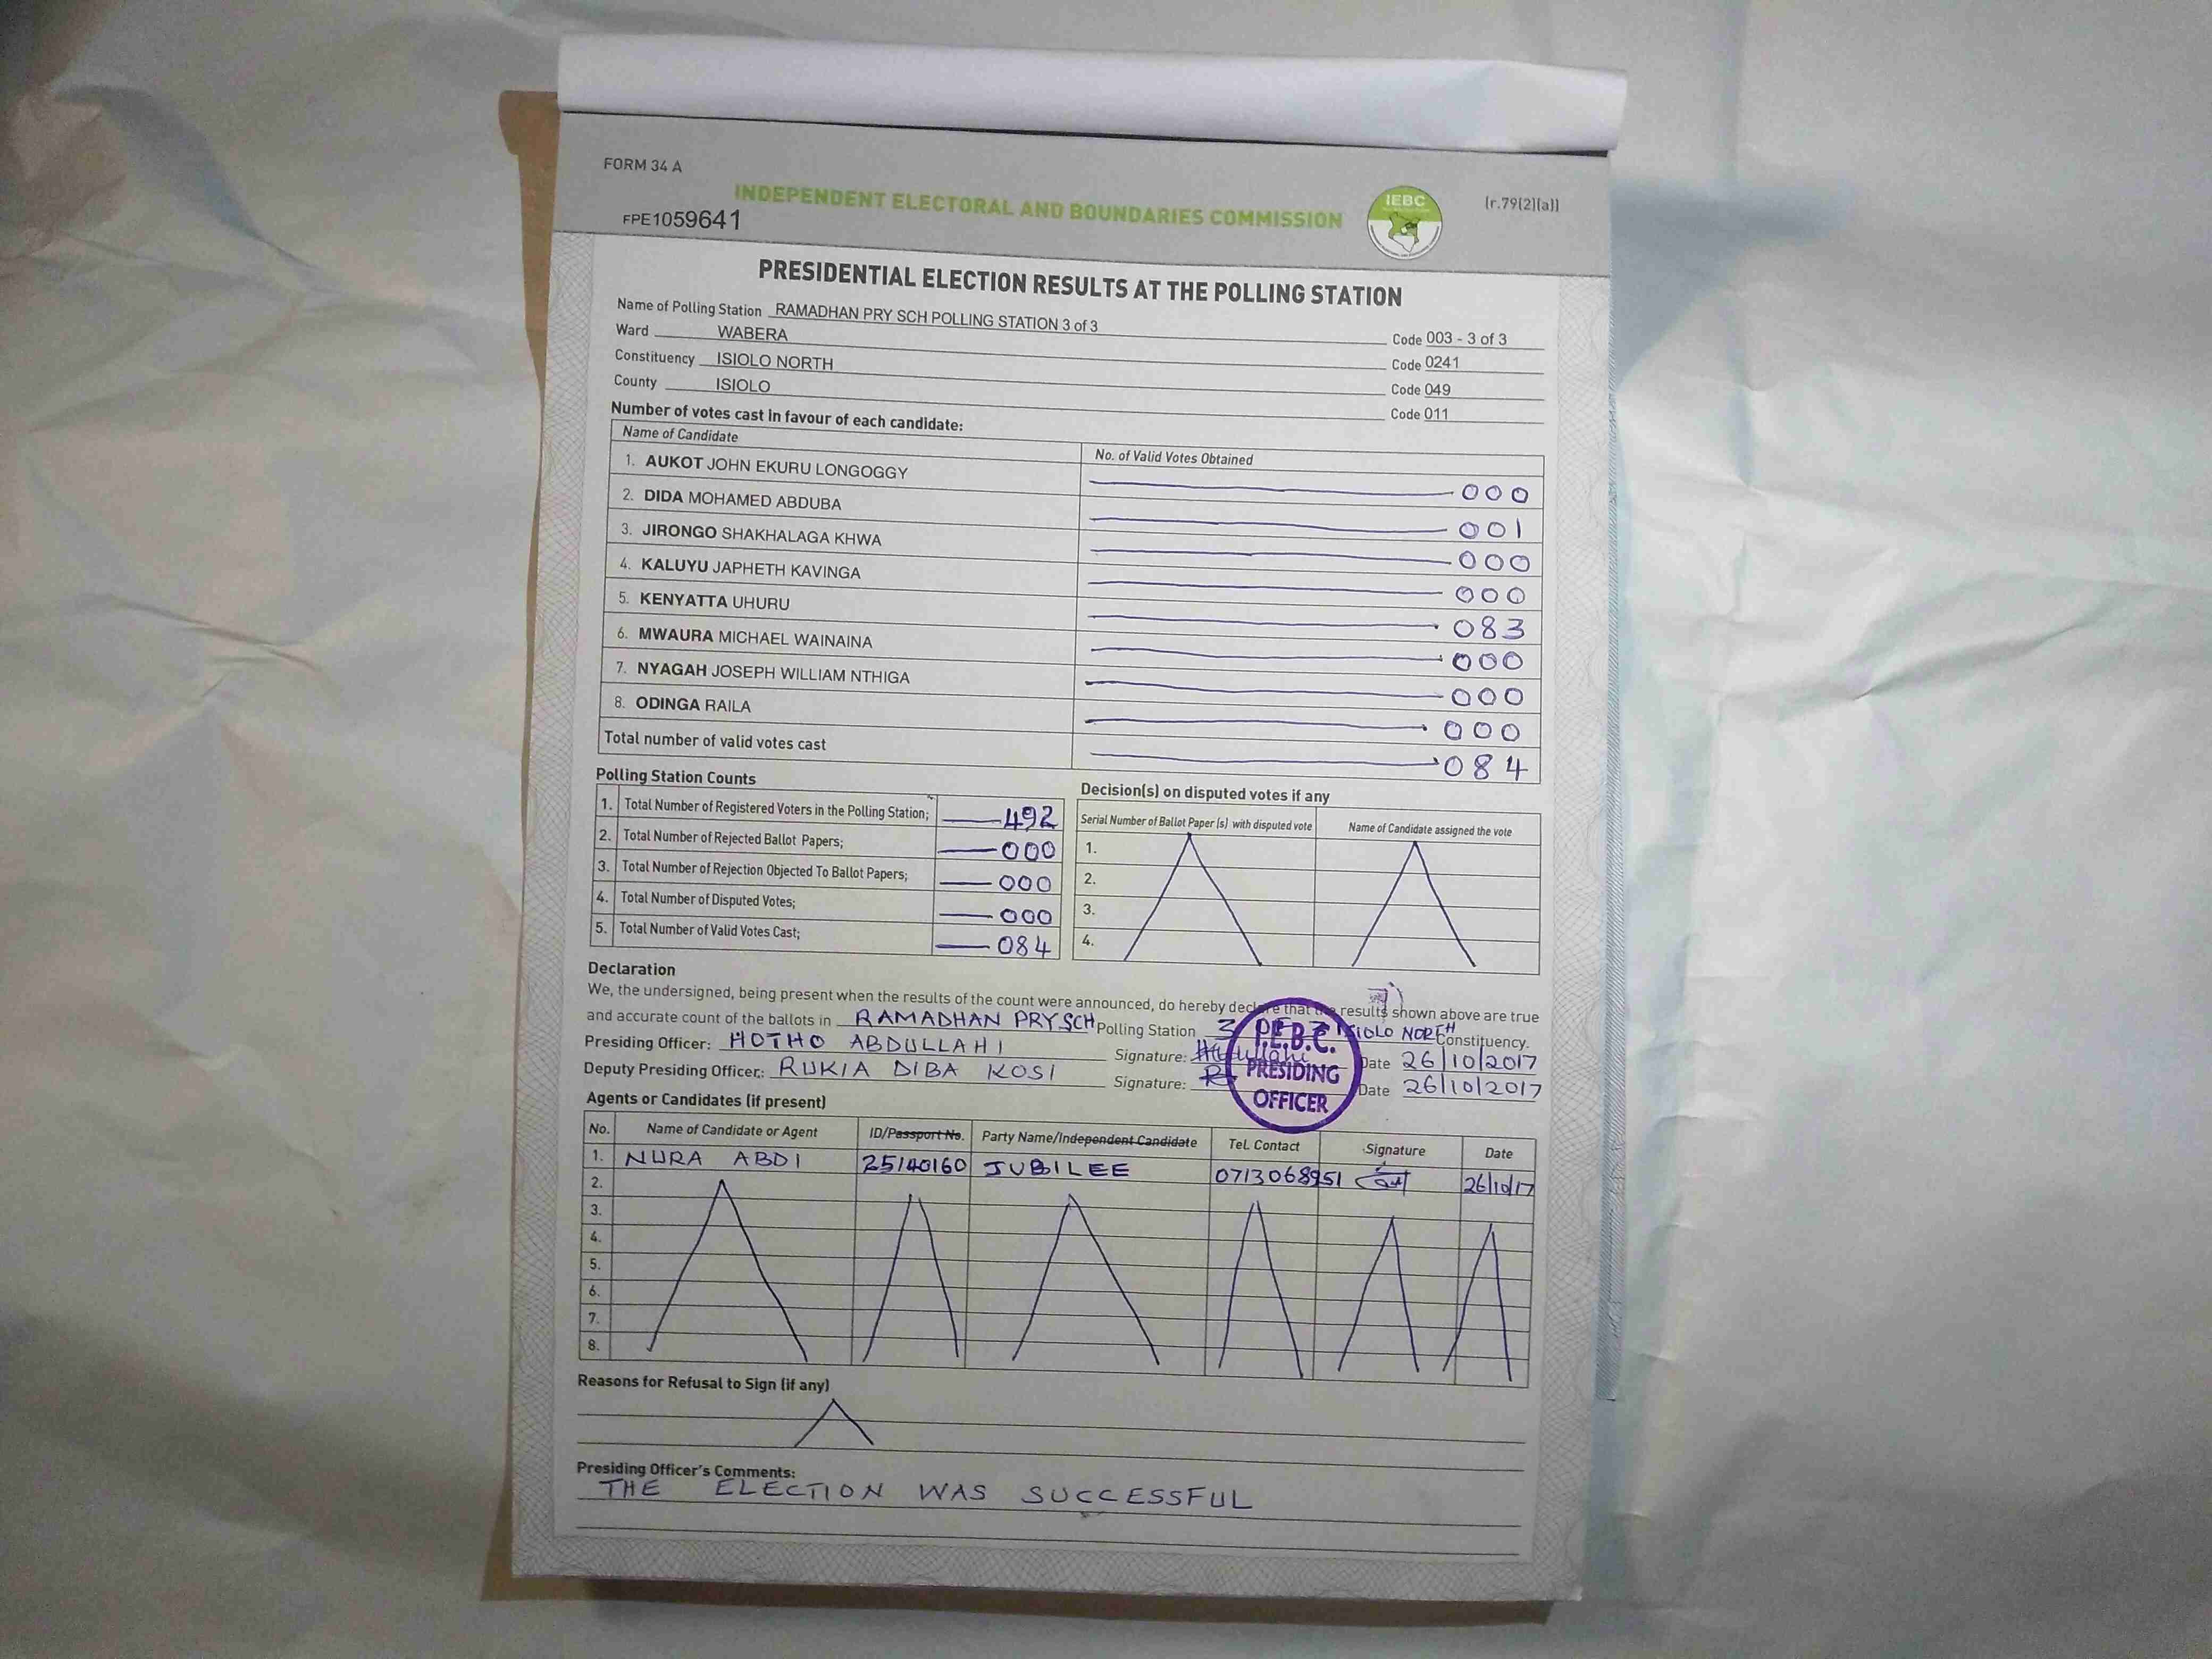 FORM 34 A
INDEPENDENT ELECTORAL AND BOUNDARIES COMMISSION
IEBC
(r.79(2)(a))
FPE1059641
PRESIDENTIAL ELECTION RESULTS AT THE POLLING STATION
Name of Polling Station RAMADHAN PRY SCH POLLING STATION 3 of 3 Code 003 - 3 of 3
Ward WABERA Code 0241
Constituency ISIOLO NORTH Code 049
County ISIOLO Code 011
Number of votes cast in favour of each candidate:
Name of Candidate No. of Valid Votes Obtained
1. AUKOT JOHN EKURU LONGOGGY 000
2. DIDA MOHAMED ABDUBA 001
3. JIRONGO SHAKHALAGA KHWA 000
4. KALUYU JAPHETH KAVINGA 000
5. KENYATTA UHURU 083
6. MWAURA MICHAEL WAINAINA 000
7. NYAGAH JOSEPH WILLIAM NTHIGA 000
8. ODINGA RAILA 000
Total number of valid votes cast 084
Polling Station Counts
1. Total Number of Registered Voters in the Polling Station; 492
2. Total Number of Rejected Ballot Papers; 000
3. Total Number of Rejection Objected To Ballot Papers; 000
4. Total Number of Disputed Votes; 000
5. Total Number of Valid Votes Cast; 084
Decision(s) on disputed votes if any
Serial Number of Ballot Paper (s) with disputed vote Name of Candidate assigned the vote
1.
2.
3.
4.
Declaration
We, the undersigned, being present when the results of the count were announced, do hereby declare that the results shown above are true
and accurate count of the ballots in RAMADHAN PRY SCH Polling Station 3 OF 3 ISIOLO NORTH Constituency.
Presiding Officer: HOTHO ABDULLAHI Signature: Abdullahi Date 26/10/2017
Deputy Presiding Officer: RUKIA DIBA KOSI Signature: Date 26/10/2017
I.E.B.C.
PRESIDING
OFFICER
Agents or Candidates (if present)
No. Name of Candidate or Agent ID/Passport No. Party Name/Independent Candidate Tel. Contact Signature Date
1. NURA ABDI 25140160 JUBILEE 0713068951 26/10/17
2.
3.
4.
5.
6.
7.
8.
Reasons for Refusal to Sign (if any)
Presiding Officer's Comments:
THE ELECTION WAS SUCCESSFUL